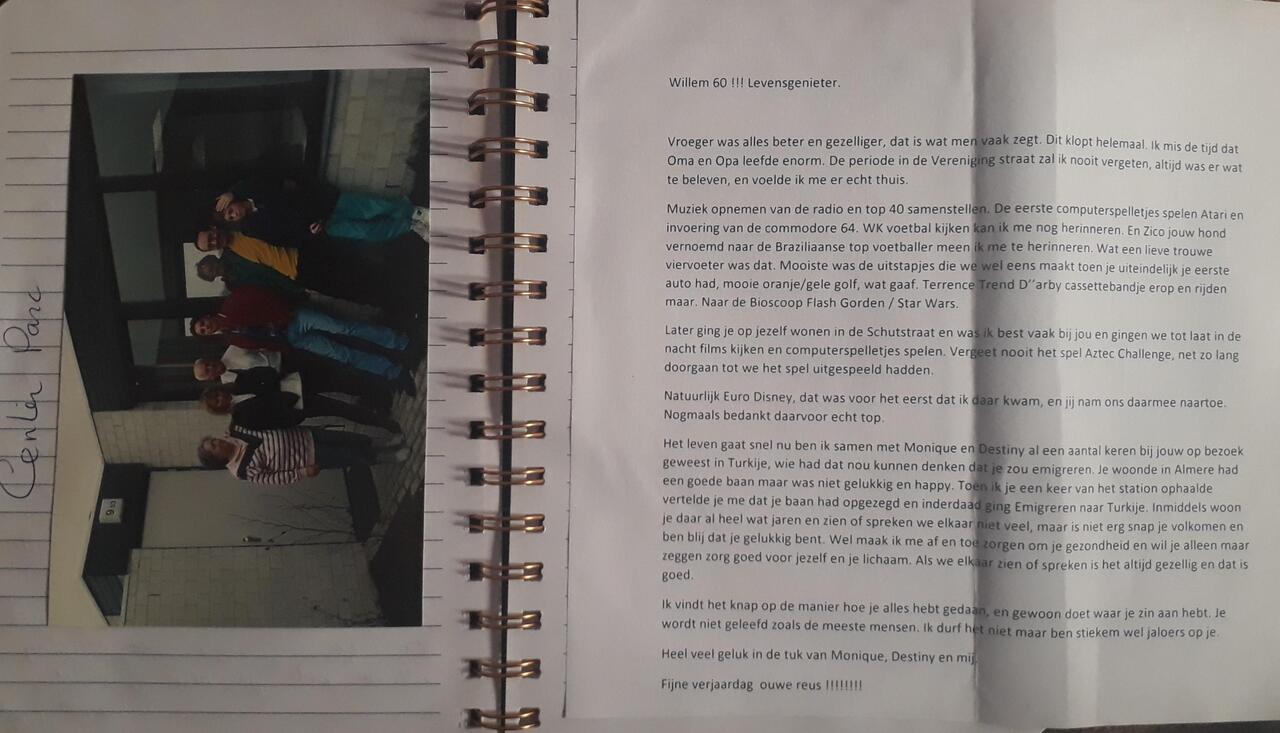 Center Parc
Willem 60 !!! Levensgenieter.
Vroeger was alles beter en gezelliger, dat is wat men vaak zegt. Dit klopt helemaal. Ik mis de tijd dat
Oma en Opa leefde enorm. De periode in de Vereniging straat zal ik nooit vergeten, altijd was er wat
te beleven, en voelde ik me er echt thuis.
Muziek opnemen van de radio en top 40 samenstellen. De eerste computerspelletjes spelen Atari en
invoering van de commodore 64. WK voetbal kijken kan ik me nog herinneren. En Zico jouw hond
vernoemd naar de Braziliaanse top voetballer meen ik me te herinneren. Wat een lieve trouwe
viervoeter was dat. Mooiste was de uitstapjes die we wel eens maakt toen je uiteindelijk je eerste
auto had, mooie oranje/gele golf, wat gaaf. Terrence Trend D"arby cassettebandje erop en rijden
maar. Naar de Bioscoop Flash Gorden / Star Wars.
Later ging je op jezelf wonen in de Schutstraat en was ik best vaak bij jou en gingen we tot laat in de
nacht films kijken en computerspelletjes spelen. Vergeet nooit het spel Aztec Challenge, net zo lang
doorgaan tot we het spel uitgespeeld hadden.
Natuurlijk Euro Disney, dat was voor het eerst dat ik daar kwam, en jij nam ons daarmee naartoe.
Nogmaals bedankt daarvoor echt top.
Het leven gaat snel nu ben ik samen met Monique en Destiny al een aantal keren bij jouw op bezoek
geweest in Turkije, wie had dat nou kunnen denken dat je zou emigreren. Je woonde in Almere had
een goede baan maar was niet gelukkig en happy. Toen ik je een keer van het station ophaalde
vertelde je me dat je baan had opgezegd en inderdaad ging Emigreren naar Turkije. Inmiddels woon
je daar al heel wat jaren en zien of spreken we elkaar niet veel, maar is niet erg snap je volkomen en
ben blij dat je gelukkig bent. Wel maak ik me af en toe zorgen om je gezondheid en wil je alleen maar
zeggen zorg goed voor jezelf en je lichaam. Als we elkaar zien of spreken is het altijd gezellig en dat is
goed.
Ik vindt het knap op de manier hoe je alles hebt gedaan, en gewoon doet waar je zin aan hebt. Je
wordt niet geleefd zoals de meeste mensen. Ik durf het niet maar ben stiekem wel jaloers op je.
Heel veel geluk in de tuk van Monique, Destiny en mij.
Fijne verjaardag ouwe reus !!!!!!!!